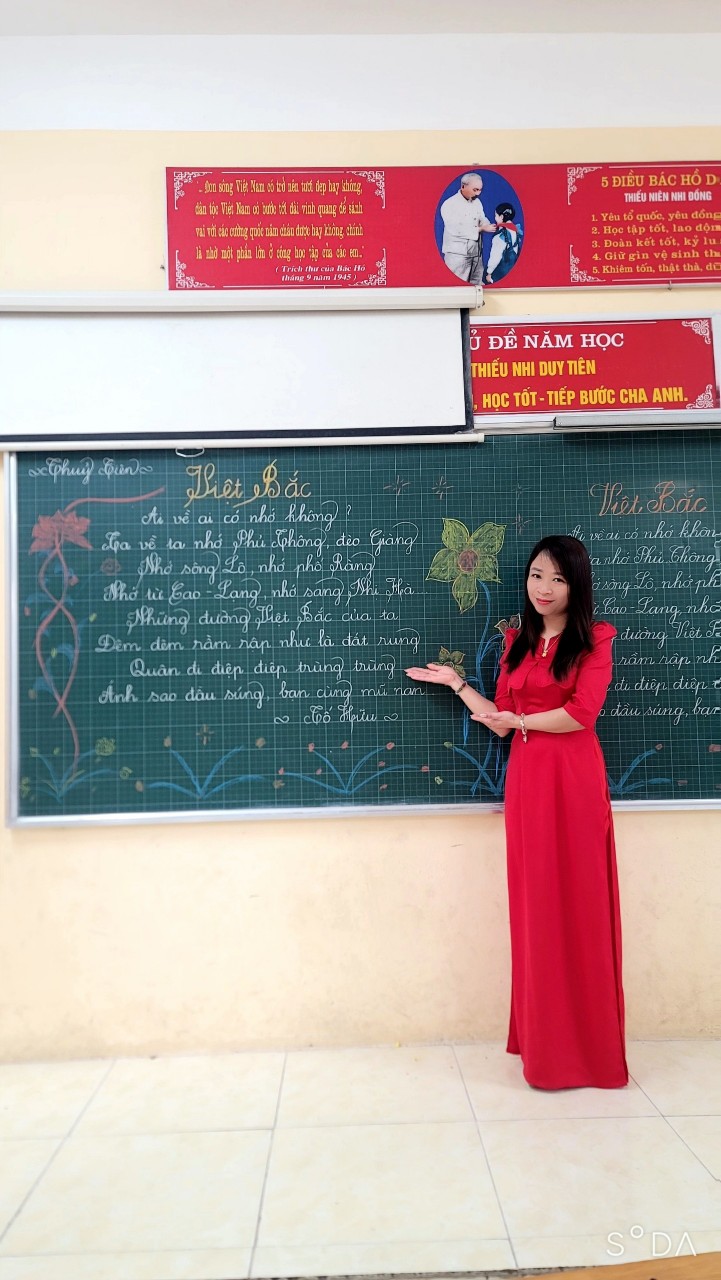 "... Non sông Việt Nam có trở nên tươi đẹp hay không,
dân tộc Việt Nam có bước tới đài vinh quang để sánh
vai với các cường quốc năm châu được hay không, chính
là nhờ một phần lớn ở công học tập của các em..."
( Trích thư của Bác Hồ
tháng 9 năm 1945 )
5 ĐIỀU BÁC HỒ D
THIẾU NIÊN NHI ĐỒNG
1. Yêu tổ quốc, yêu đồng
2. Học tập tốt, lao độn
3. Đoàn kết tốt, kỷ lu
4. Giữ gìn vệ sinh th
5. Khiêm tốn, thật thà, dũ
Ủ ĐỀ NĂM HỌC
THIẾU NHI DUY TIÊN
, HỌC TỐT - TIẾP BƯỚC CHA ANH.
Thuỷ Tiên
Việt Bắc
Ai về ai có nhớ không ?
Ta về ta nhớ Phủ Thông, đèo Giàng
Nhớ sông Lô, nhớ phố Ràng
Nhớ từ Cao - Lạng, nhớ sang Nhị Hà
Những đường Việt Bắc của ta
Đêm đêm rầm rập như là đất rung
Quân đi điệp điệp trùng trùng
Ánh sao đầu súng, bạn cùng mũ nan
Tố Hữu
Việt Bắc
Ai về ai có nhớ khôn
a nhớ Phủ Thông,
ớ sông Lô, nhớ ph
Cao - Lạng, nhớ
đường Việt B
rầm rập nh
đi điệp điệp
o đầu súng, bạn
SODA